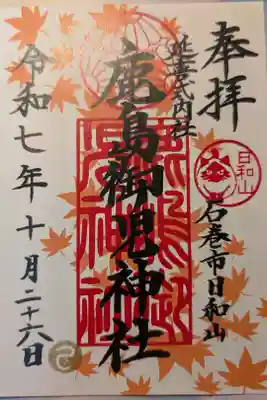 奉拝
日和山
石巻市日和山
延喜式内社
鹿島御児神社
令和七年十月二十六日